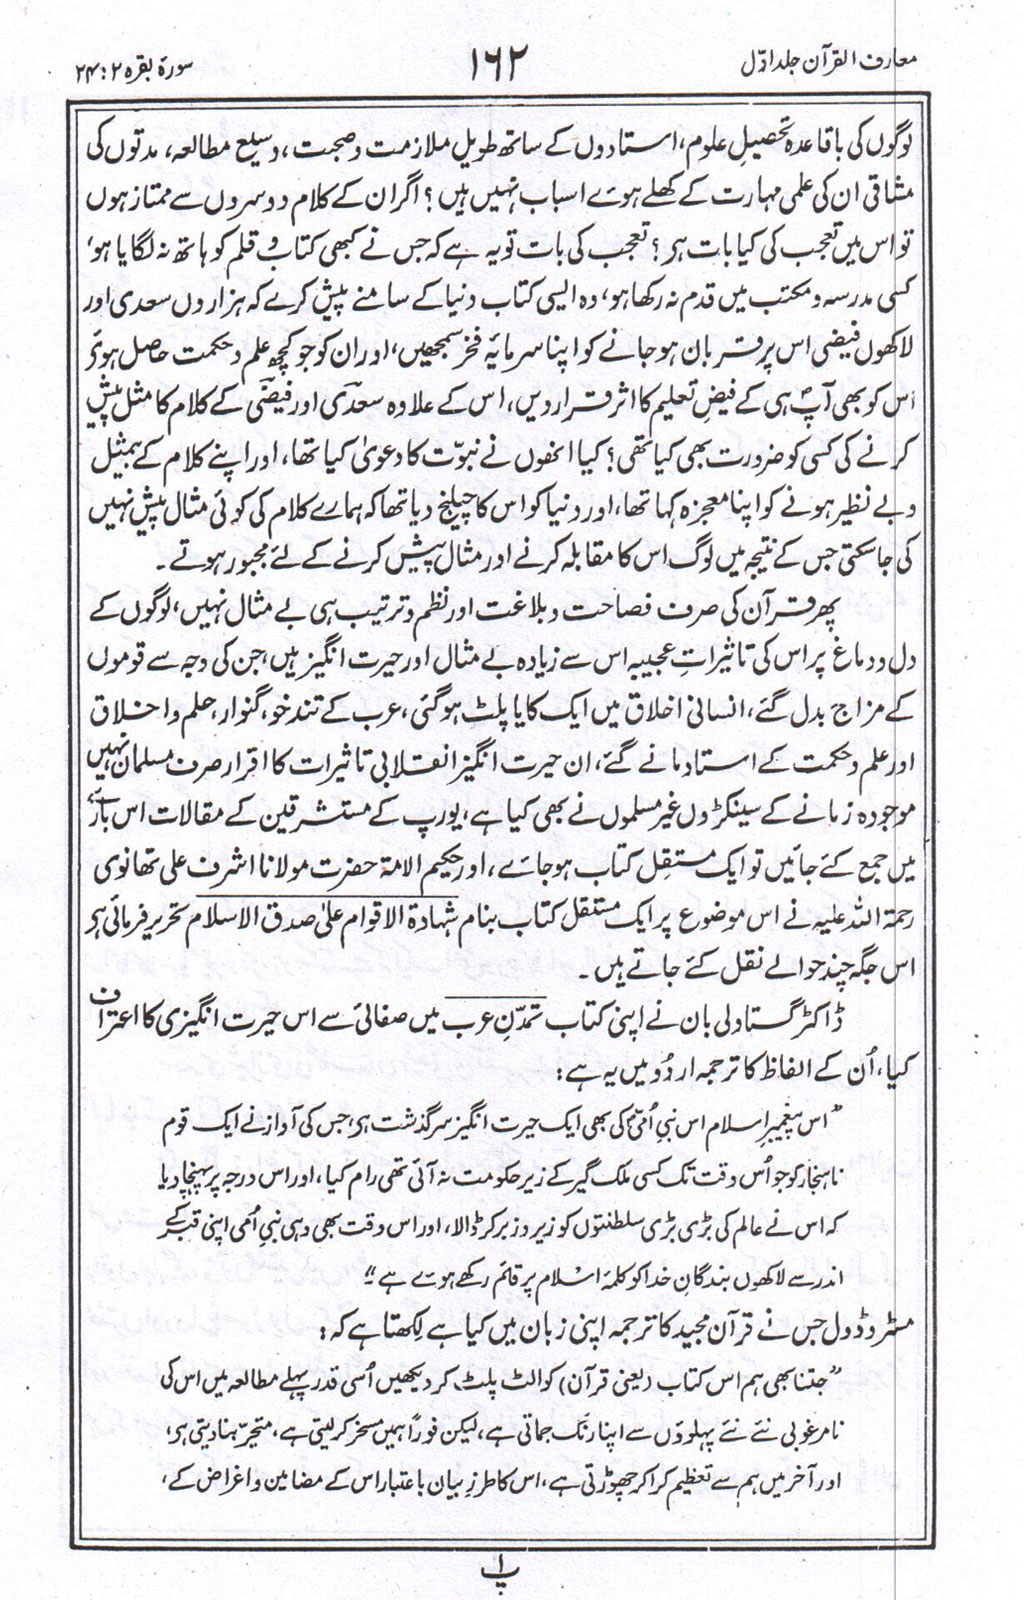 معارف القرآن جلد اوّل
۱۶۲
سورۂ بقرہ ۲ : ۲۴
لوگوں کی باقاعدہ تحصیلِ علوم، استادوں کے ساتھ طویل ملازمت وصحبت، وسیع مطالعہ، مدتوں کی
مشاقی ان کی علمی مہارت کے کھلے ہوئے اسباب نہیں ہیں؟ اگر ان کے کلام دوسروں سے ممتاز ہوں
تو اس میں تعجب کی کیا بات ہے؟ تعجب کی بات تو یہ ہے کہ جس نے کبھی کتاب و قلم کو ہاتھ نہ لگایا ہو،
کسی مدرسہ و مکتب میں قدم نہ رکھا ہو، وہ ایسی کتاب دنیا کے سامنے پیش کرے کہ ہزاروں سعدی اور
لاکھوں فیضی اس پر قربان ہو جانے کو اپنا سرمایۂ فخر سمجھیں، اور ان کو جو کچھ علم وحکمت حاصل ہوئی
اس کو بھی آپؐ ہی کے فیضِ تعلیم کا اثر قرار دیں، اس کے علاوہ سعدیؒ اور فیضیؒ کے کلام کا مثل پیش
کرنے کی کسی کو ضرورت بھی کیا تھی؟ کیا انھوں نے نبوّت کا دعویٰ کیا تھا، اور اپنے کلام کے بے مثل
وبے نظیر ہونے کو اپنا معجزہ کہا تھا، اور دنیا کو اس کا چیلنج دیا تھا کہ ہمارے کلام کی کوئی مثال پیش نہیں
کی جاسکتی جس کے نتیجہ میں لوگ اس کا مقابلہ کرنے اور مثال پیش کرنے کے لئے مجبور ہوتے۔
پھر قرآن کی صرف فصاحت و بلاغت اور نظم وترتیب ہی بے مثال نہیں، لوگوں کے
دل ودماغ پر اس کی تاثیراتِ عجیبہ اس سے زیادہ بے مثال اور حیرت انگیز ہیں، جن کی وجہ سے قوموں
کے مزاج بدل گئے، انسانی اخلاق میں ایک کایا پلٹ ہوگئی، عرب کے تند خو، گنوار، حلم واخلاق
اور علم وحکمت کے استاد مانے گئے، ان حیرت انگیز انقلابی تاثیرات کا اقرار صرف مسلمان نہیں
موجودہ زمانے کے سینکڑوں غیر مسلموں نے بھی کیا ہے، یورپ کے مستشرقین کے مقالات اس بارے
میں جمع کئے جائیں تو ایک مستقل کتاب ہو جائے، اور حکیم الامۃ حضرت مولانا اشرف علی تھانوی
رحمۃ اللہ علیہ نے اس موضوع پر ایک مستقل کتاب بنام شہادۃ الاقوام علیٰ صدق الاسلام تحریر فرمائی ہے
اس جگہ چند حوالے نقل کئے جاتے ہیں۔
ڈاکٹر گستاولی بان نے اپنی کتاب تمدّنِ عرب میں صفائی سے اس حیرت انگیزی کا اعتراف
کیا، اُن کے الفاظ کا ترجمہ اردُو میں یہ ہے:
”اس پیغمبرِ اسلام اس نبی اُمّیؐ کی بھی ایک حیرت انگیز سرگذشت ہے، جس کی آواز نے ایک قوم
ناہنجار کو جو اُس وقت تک کسی ملک گیر کے زیر حکومت نہ آئی تھی رام کیا، اور اس درجہ پر پہنچا دیا
کہ اس نے عالم کی بڑی بڑی سلطنتوں کو زیر وزبر کر ڈالا، اور اس وقت بھی وہی نبی اُمی اپنی قبر کے
اندر سے لاکھوں بندگانِ خدا کو کلمۂ اسلام پر قائم رکھے ہوئے ہے“
مسٹر وڈول جس نے قرآن مجید کا ترجمہ اپنی زبان میں کیا ہے لکھتا ہے کہ:
”جتنا بھی ہم اس کتاب (یعنی قرآن) کو الٹ پلٹ کر دیکھیں اُسی قدر پہلے مطالعہ میں اس کی
نامرغوبی نئے نئے پہلوؤں سے اپنا رنگ جماتی ہے، لیکن فوراً ہمیں مسخر کرلیتی ہے، متحیّر بنا دیتی ہے،
اور آخر میں ہم سے تعظیم کرا کر چھوڑتی ہے، اس کا طرزِ بیان باعتبار اس کے مضامین واغراض کے،
پ ۱